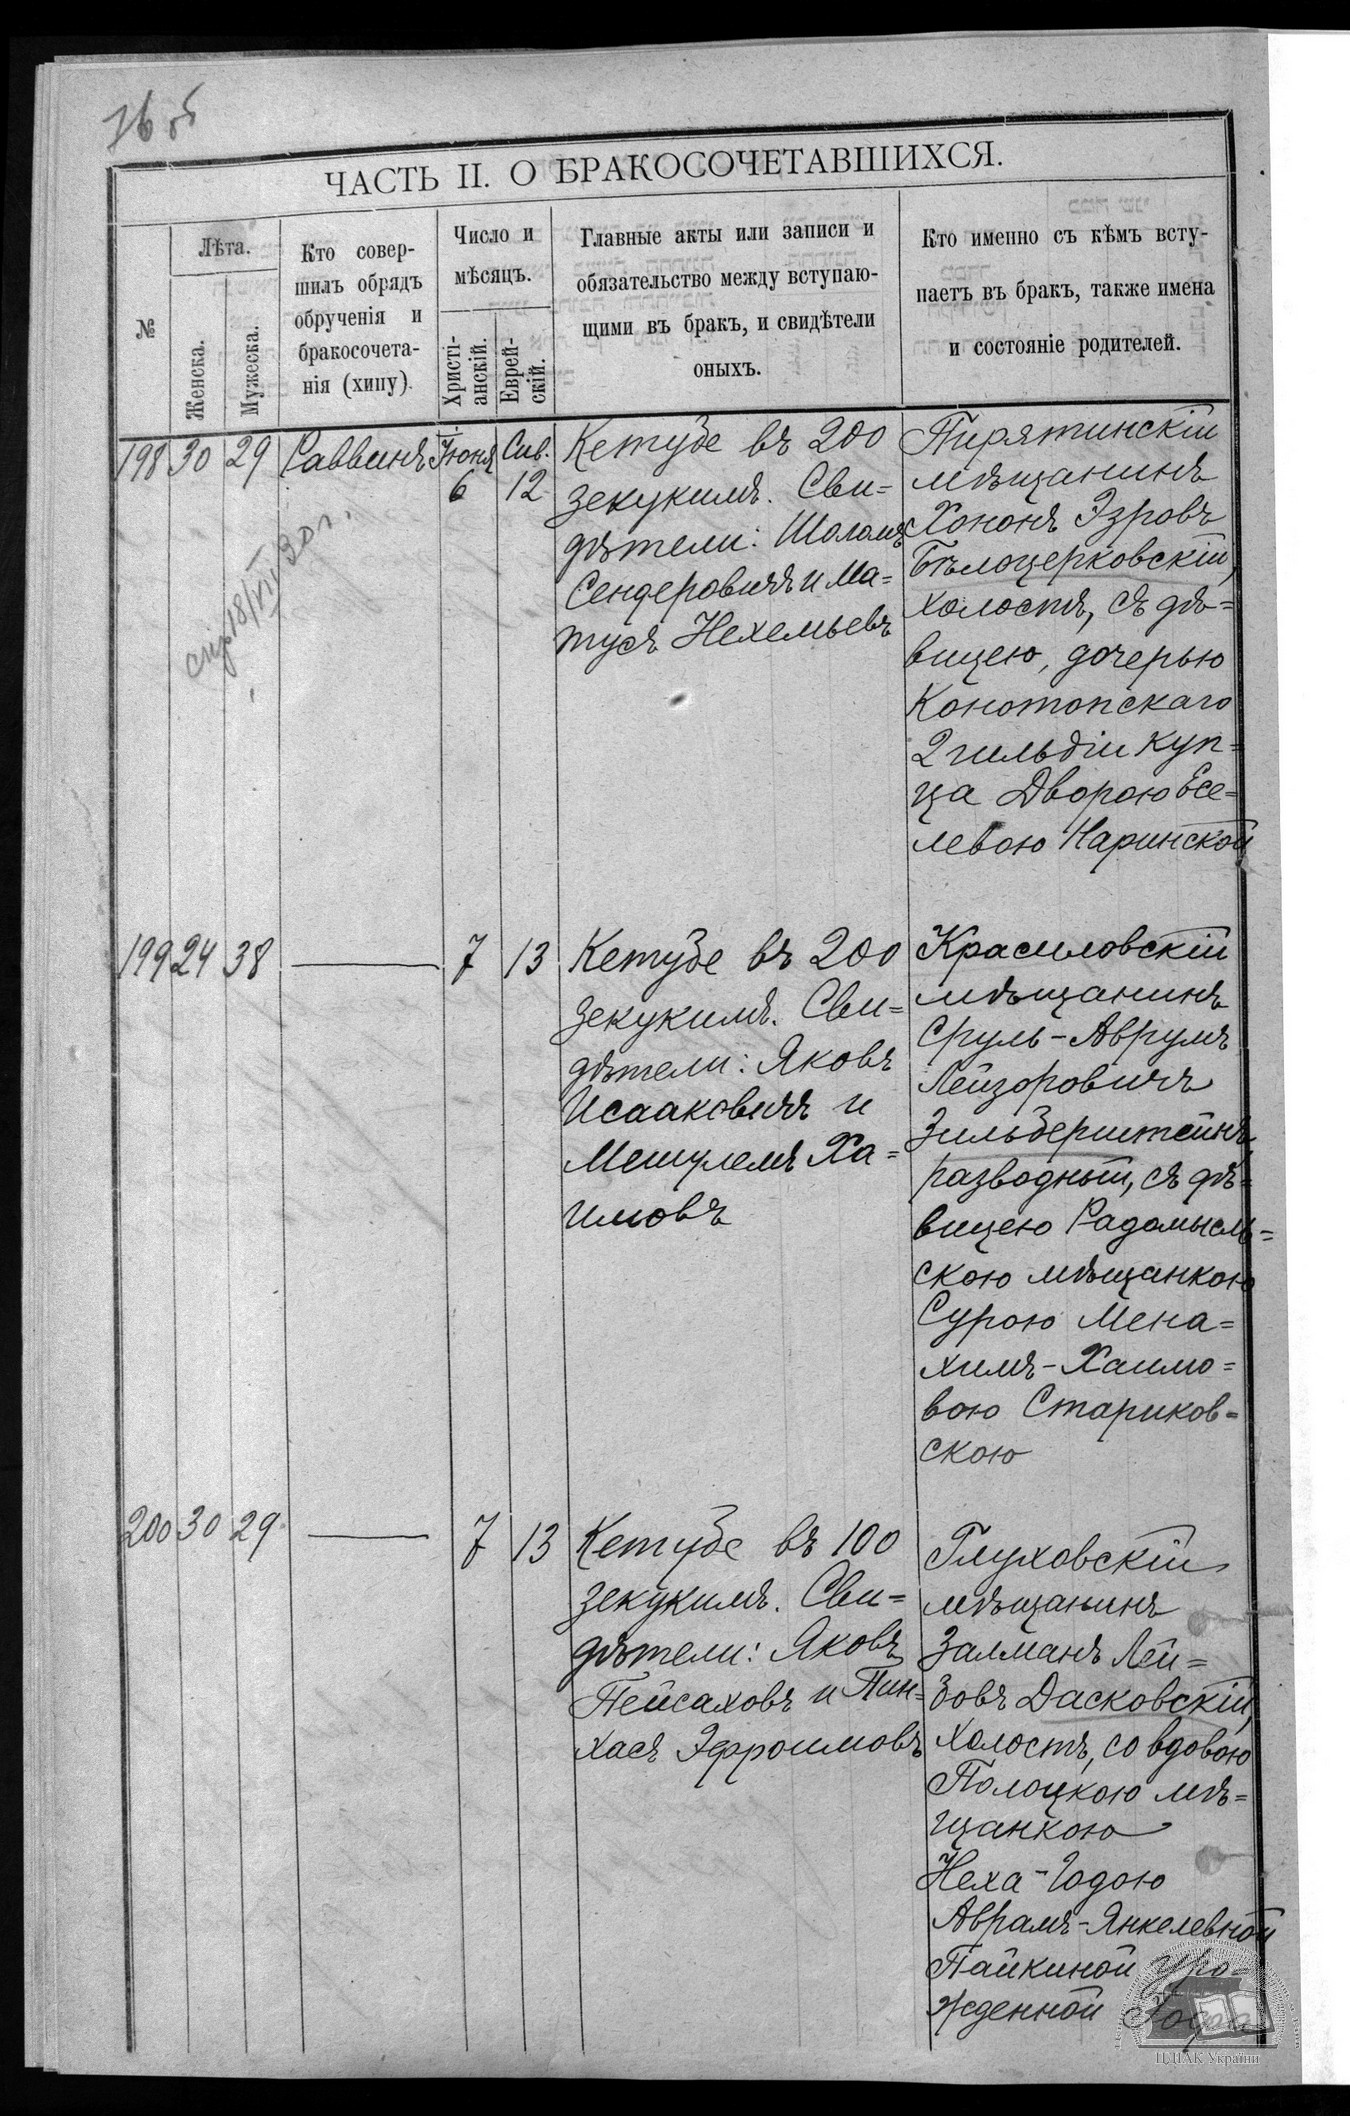 ЧАСТЬ II. О БРАКОСОЧЕТАВШИХСЯ.
№
Лѣта.
Женска.
Мужеска.
Кто совер-
шилъ обрядъ
обрученія и
бракосочета-
нія (хипу)
Число и
мѣсяцъ.
Христі-
анскій.
Еврей-
скій.
Главные акты или записи и
обязательство между вступаю-
щими въ бракъ, и свидѣтели
оныхъ.
Кто именно съ кѣмъ всту-
паетъ въ бракъ, также имена
и состояніе родителей.
198 30 29 Раввинъ Іюня 6 Сив. 12
Кетубе въ 200
зекукимъ. Сви=
дѣтели: Шоломъ
Сендеровичъ и Ма=
тусъ Нехемьевъ
Пирятинскій
мѣщанинъ
Хононъ Эзровъ
Бѣлоцерковскій,
холостъ, съ дѣ=
вицею, дочерью
Конотопскаго
2 гильдіи куп=
ца Дворою Есе=
левою Наринской
18/VII 30 г.
199 24 38 7 13
Кетубе въ 200
зекукимъ. Сви=
дѣтели: Яковъ
Исааковичъ и
Мешулемъ Ха=
имовъ
Красиловскій
мѣщанинъ
Сруль-Аврумъ
Лейзоровичъ
Зильберштейнъ,
разводный, съ дѣ=
вицею Радомысль=
скою мѣщанкою
Сурою Мена=
химъ-Хаимо=
вою Стариков=
скою
200 30 29 7 13
Кетубе въ 100
зекукимъ. Сви=
дѣтели: Яковъ
Пейсаховъ и Пин=
хасъ Эфроимовъ
Глуховскій
мѣщанинъ
Залманъ Лей=
зовъ Дасковскій,
холостъ, со вдовою
Полоцкою мѣ=
щанкою
Неха-Годою
Аврамъ-Янкелевной
Пайкиной уро=
жденной
ЦДІАК України